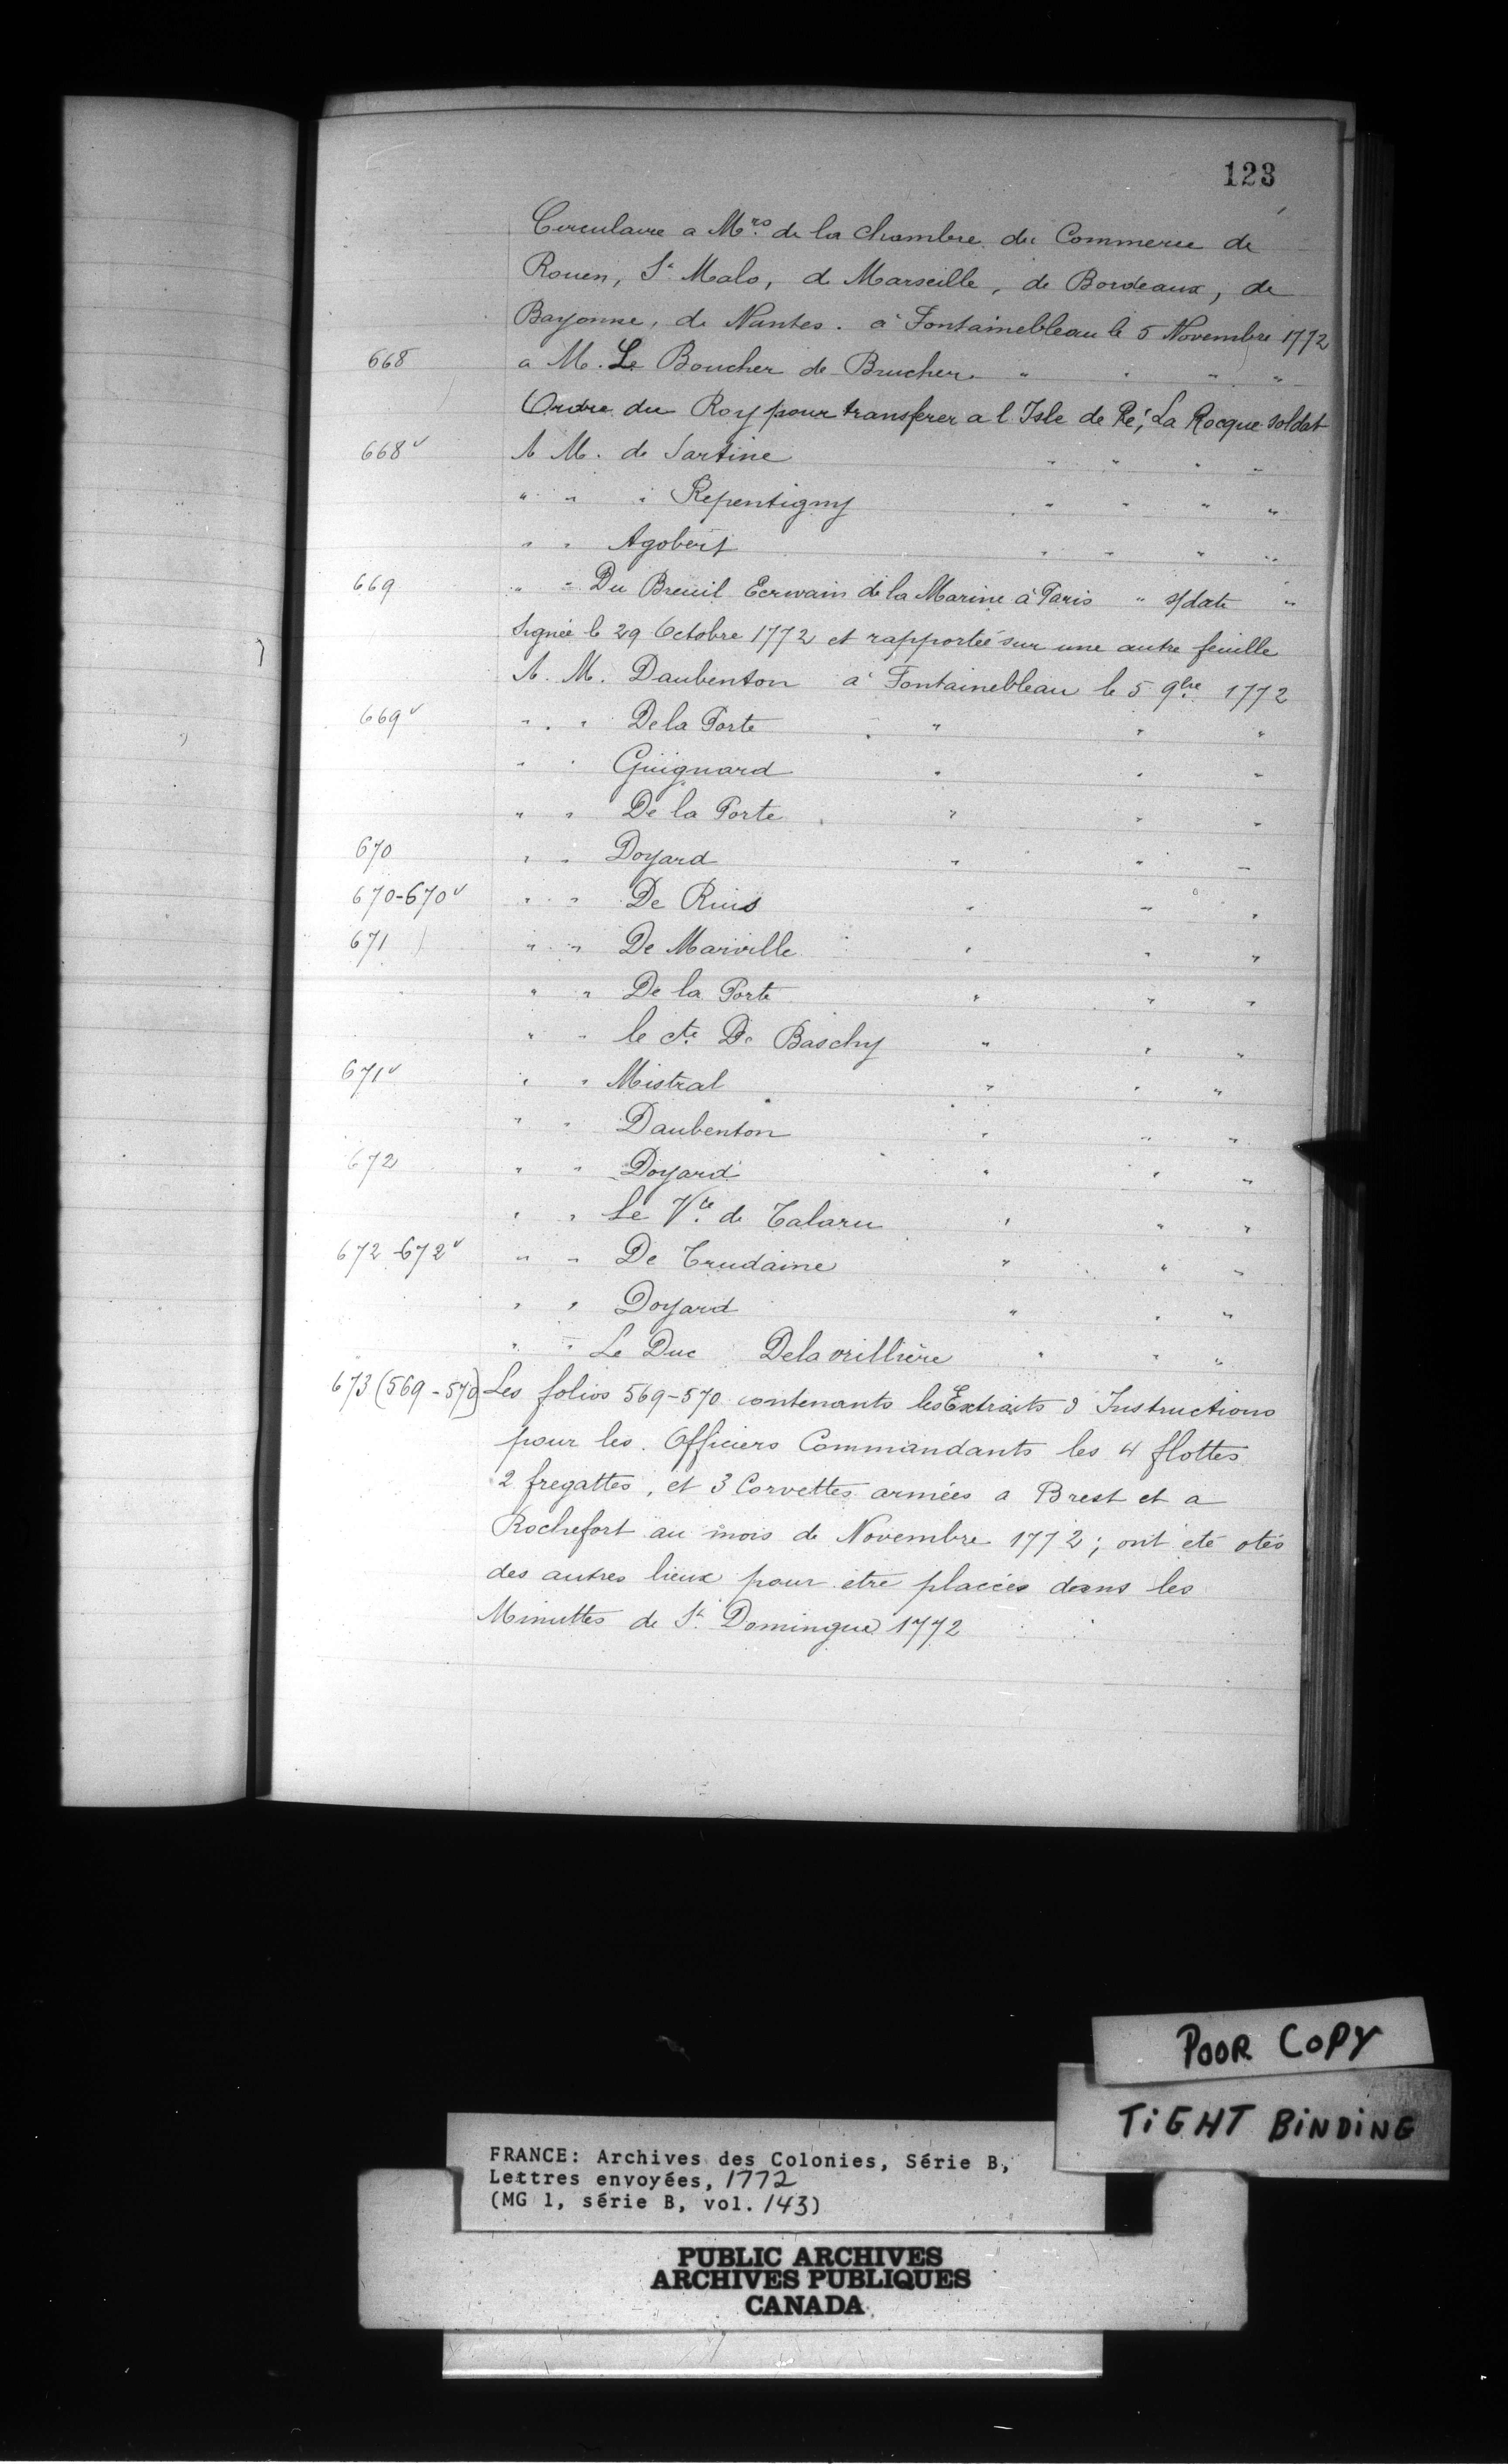 123
Circulaire a Mrs. de la Chambre du Commerce de
Rouen, St Malo, de Marseille, de Bordeaux, de
Bayonne, de Nantes. a Fontainebleau le 5 Novembre 1772
668 a M. Le Boucher de Brucher " " " "
Ordre du Roy pour transferer a l Isle de Ré, La Rocque soldat
668v A M. de Sartine " " " "
" " " Repentigny " " " "
" " Agobert " " " "
669 " " Du Breuil Ecrivain de la Marine à Paris " s/date "
Signée le 29 Octobre 1772 et rapportée sur une autre feuille
A. M. Daubenton a Fontainebleau le 5 9bre 1772
669v " " De la Porte " " "
" " Guignard " " "
" " De la Porte " " "
670 " " Doyard " " "
670-670v " " De Ruis " " "
671 " " De Marville " " "
" " De la Porte " " "
" " le cte De Baschy " " "
671v " " Mistral " " "
" " Daubenton " " "
672 " " Doyard " " "
" " Le Vte de Talaru " " "
672-672v " " De Trudaine " " "
" " Doyard " " "
" " Le Duc Delavrillière " " "
673 (569-570) Les folios 569-570 contenants les Extraits d Instructions
pour les Officiers Commandants les 4 flottes
2 fregattes, et 3 Corvettes armées a Brest et a
Rochefort au mois de Novembre 1772; ont eté otés
des autres lieux pour etre placées dans les
Minuttes de St. Domingue 1772
POOR COPY
TiGHT BiNDiNG
FRANCE: Archives des Colonies, Série B,
Lettres envoyées, 1772
(MG 1, série B, vol. 143)
PUBLIC ARCHIVES
ARCHIVES PUBLIQUES
CANADA